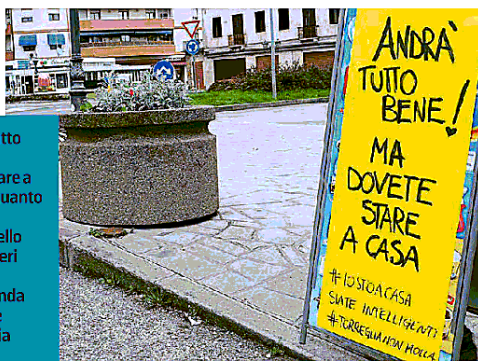 tto
are a
uanto
ello
eri
nda
e
ia
ANDRA'
TUTTO
BENE!
MA
DOVETE
STARE
A CASA
#IOSTOACASA
SIATE INTELLIGENTI
#TORREGLIANONMOLLA